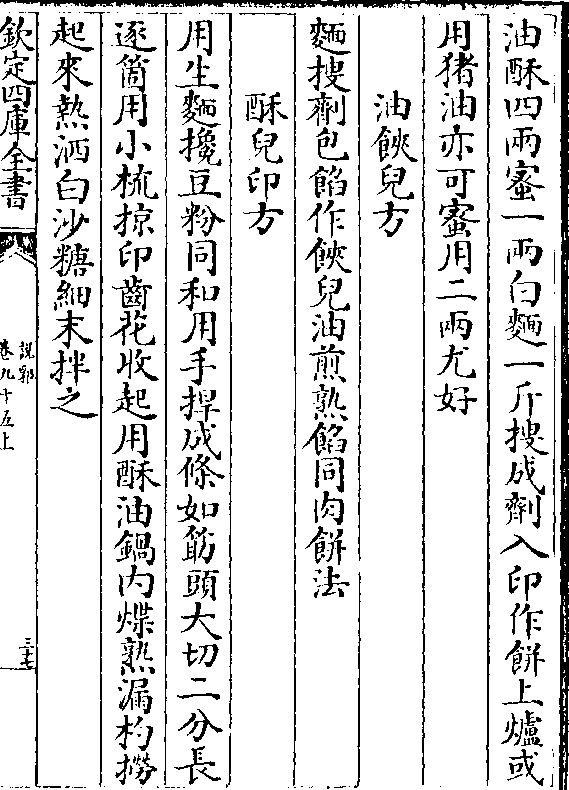 油酥四兩蜜一兩白麵一斤搜成劑入印作餅上爐或
用猪油亦可蜜用二兩尤好
油餃兒方
麵搜劑包餡作餃兒油煎熟餡同肉餅法
酥兒印方
用生麵攙豆粉同和用手捍成條如筯頭大切二分長
逐箇用小梳掠印齒花收起用酥油鍋内煠熟漏杓撈
起來熱洒白沙糖細末拌之
欽定四庫全書
說郛
卷九十五上
三十七